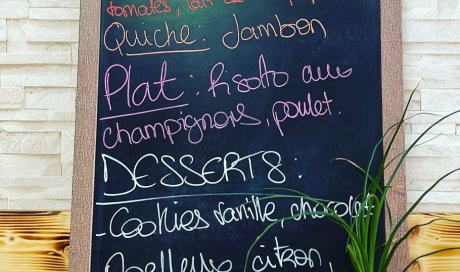 tomates, lait de
Quiche: Jambon
Plat: Risoto aux
champignons, poulet.
DESSERTS:
- Cookies vanille, chocolat
Moelleux citron,